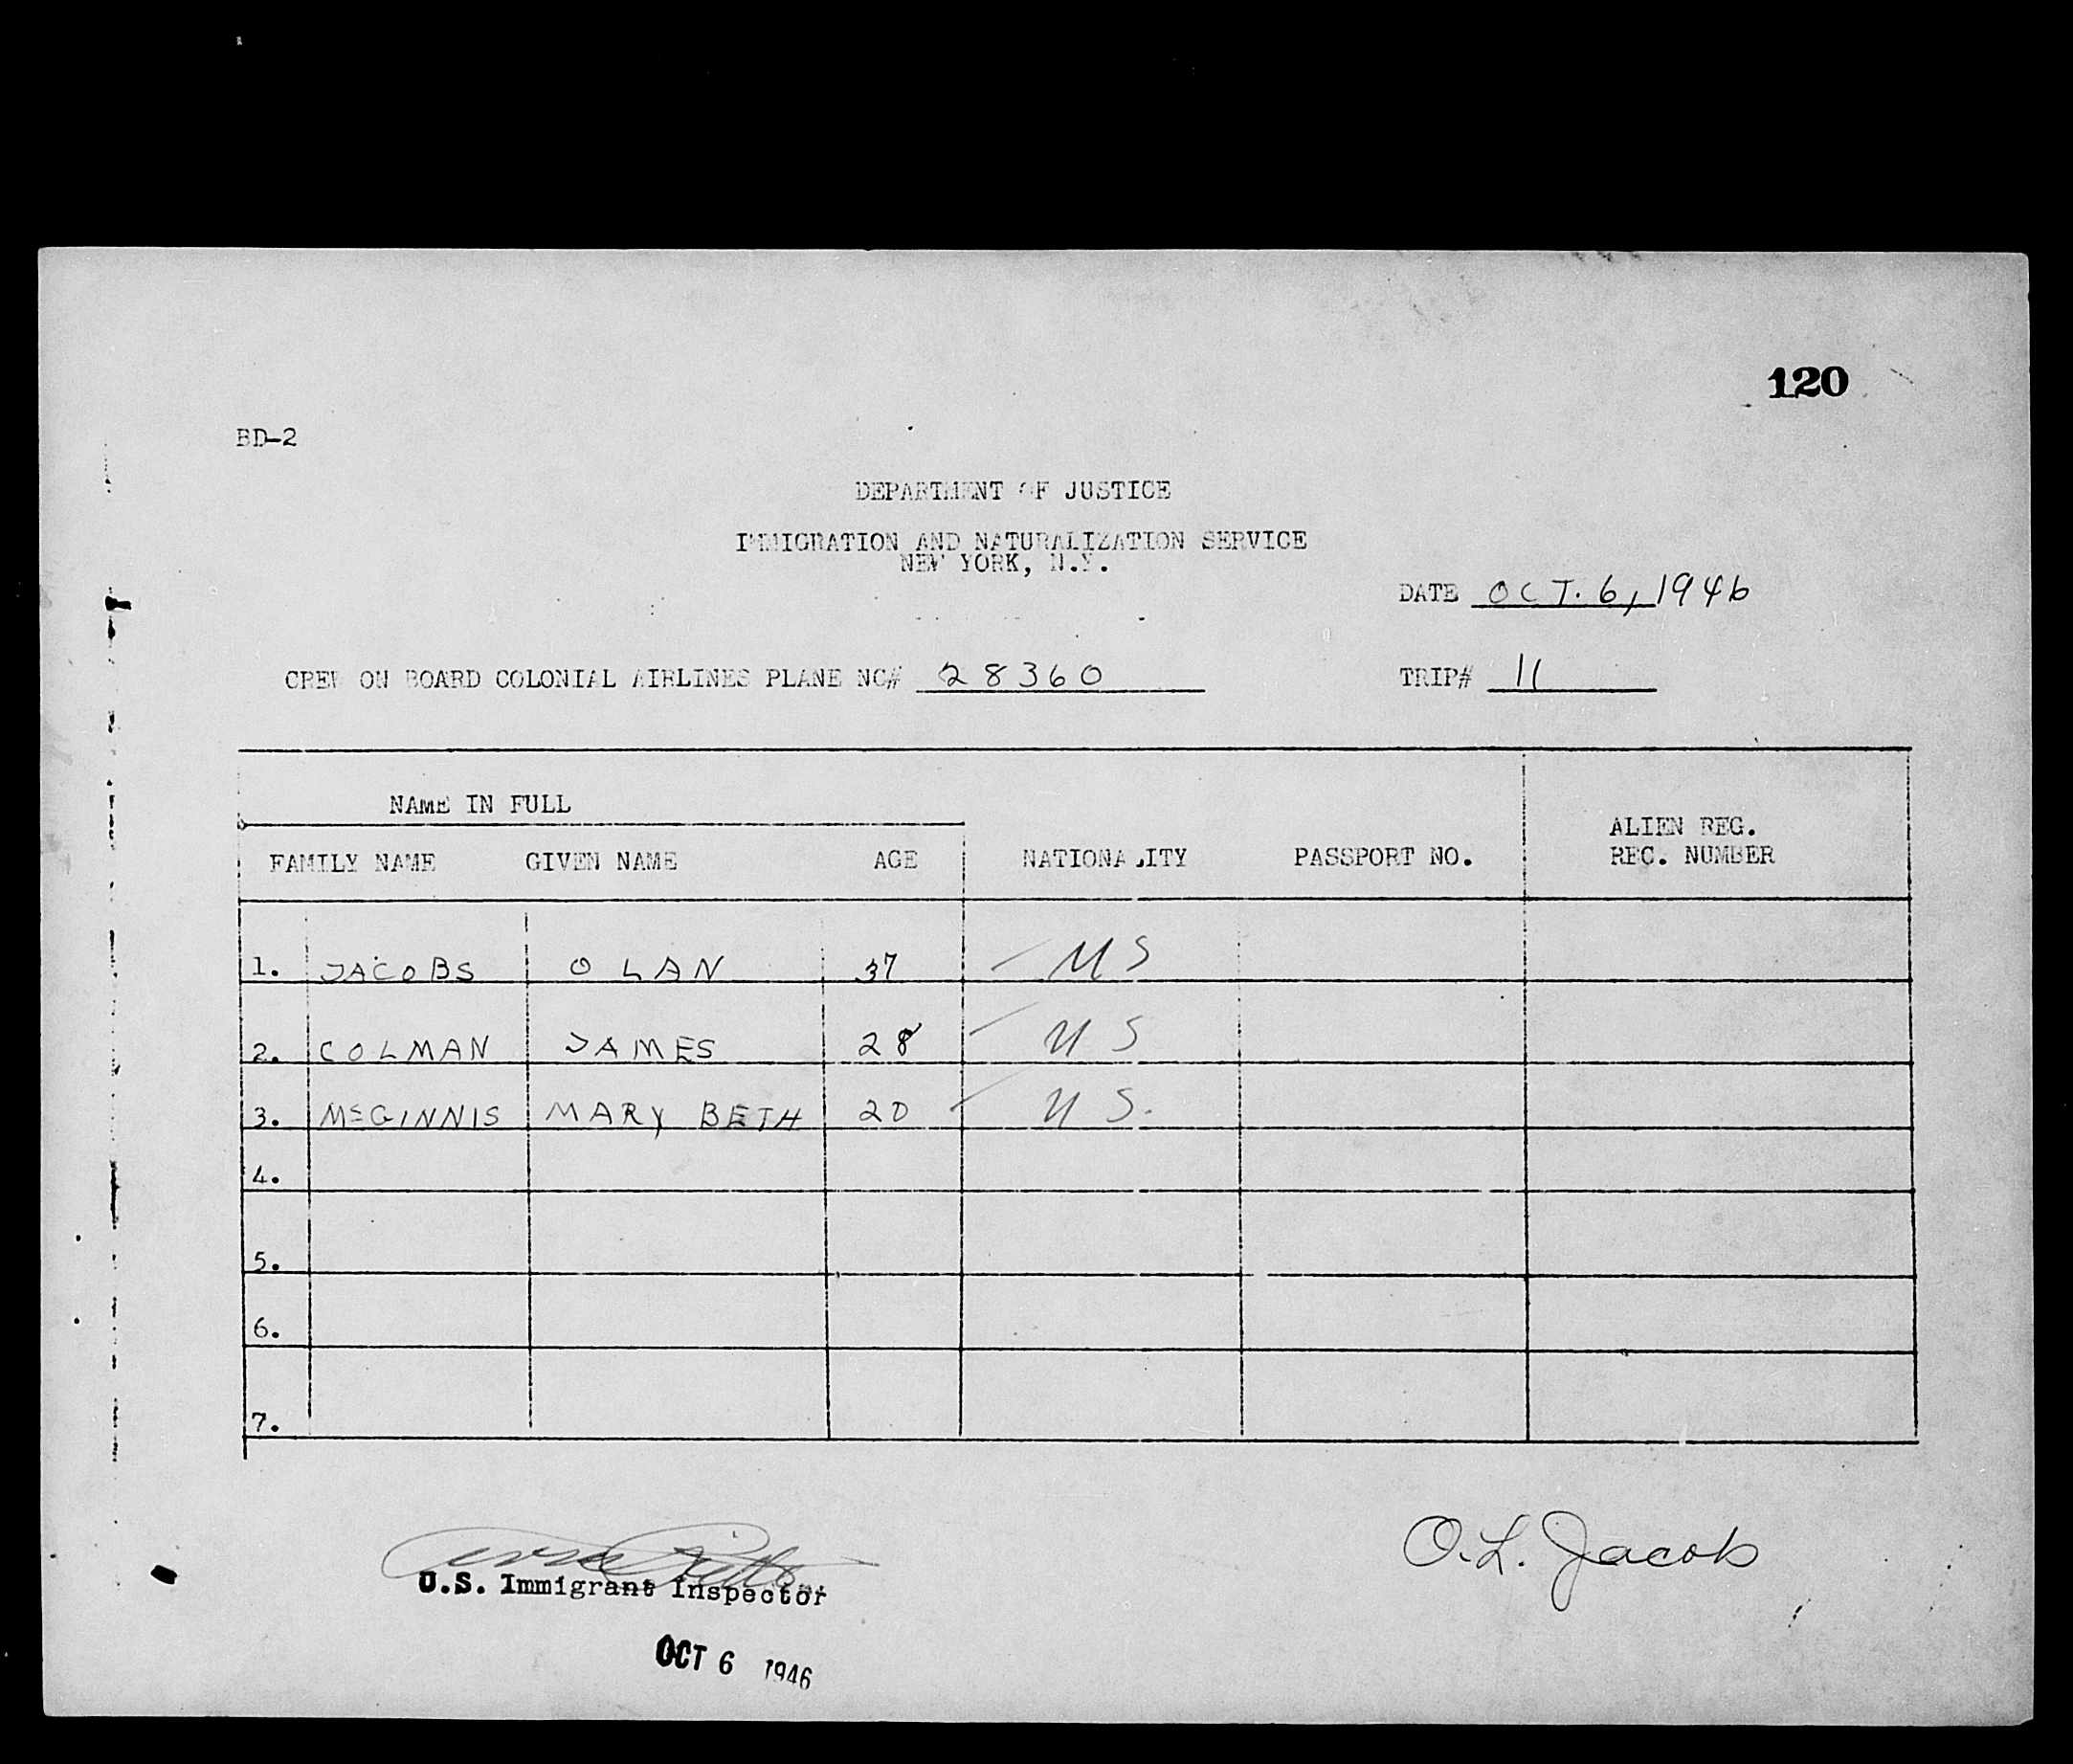 120
BD-2
DEPARTMENT OF JUSTICE
IMMIGRATION AND NATURALIZATION SERVICE
NEW YORK, N.Y.
DATE OCT. 6, 1946
CREW ON BOARD COLONIAL AIRLINES PLANE NC# 28360 TRIP# 11
NAME IN FULL
FAMILY NAME GIVEN NAME AGE NATIONALITY PASSPORT NO. ALIEN REG. REC. NUMBER
1. JACOBS OLAN 37 US
2. COLMAN JAMES 28 US
3. McGINNIS MARY BETH 20 US.
4.
5.
6.
7.
O.L. Jacobs
U.S. Immigrant Inspector
OCT 6 1946